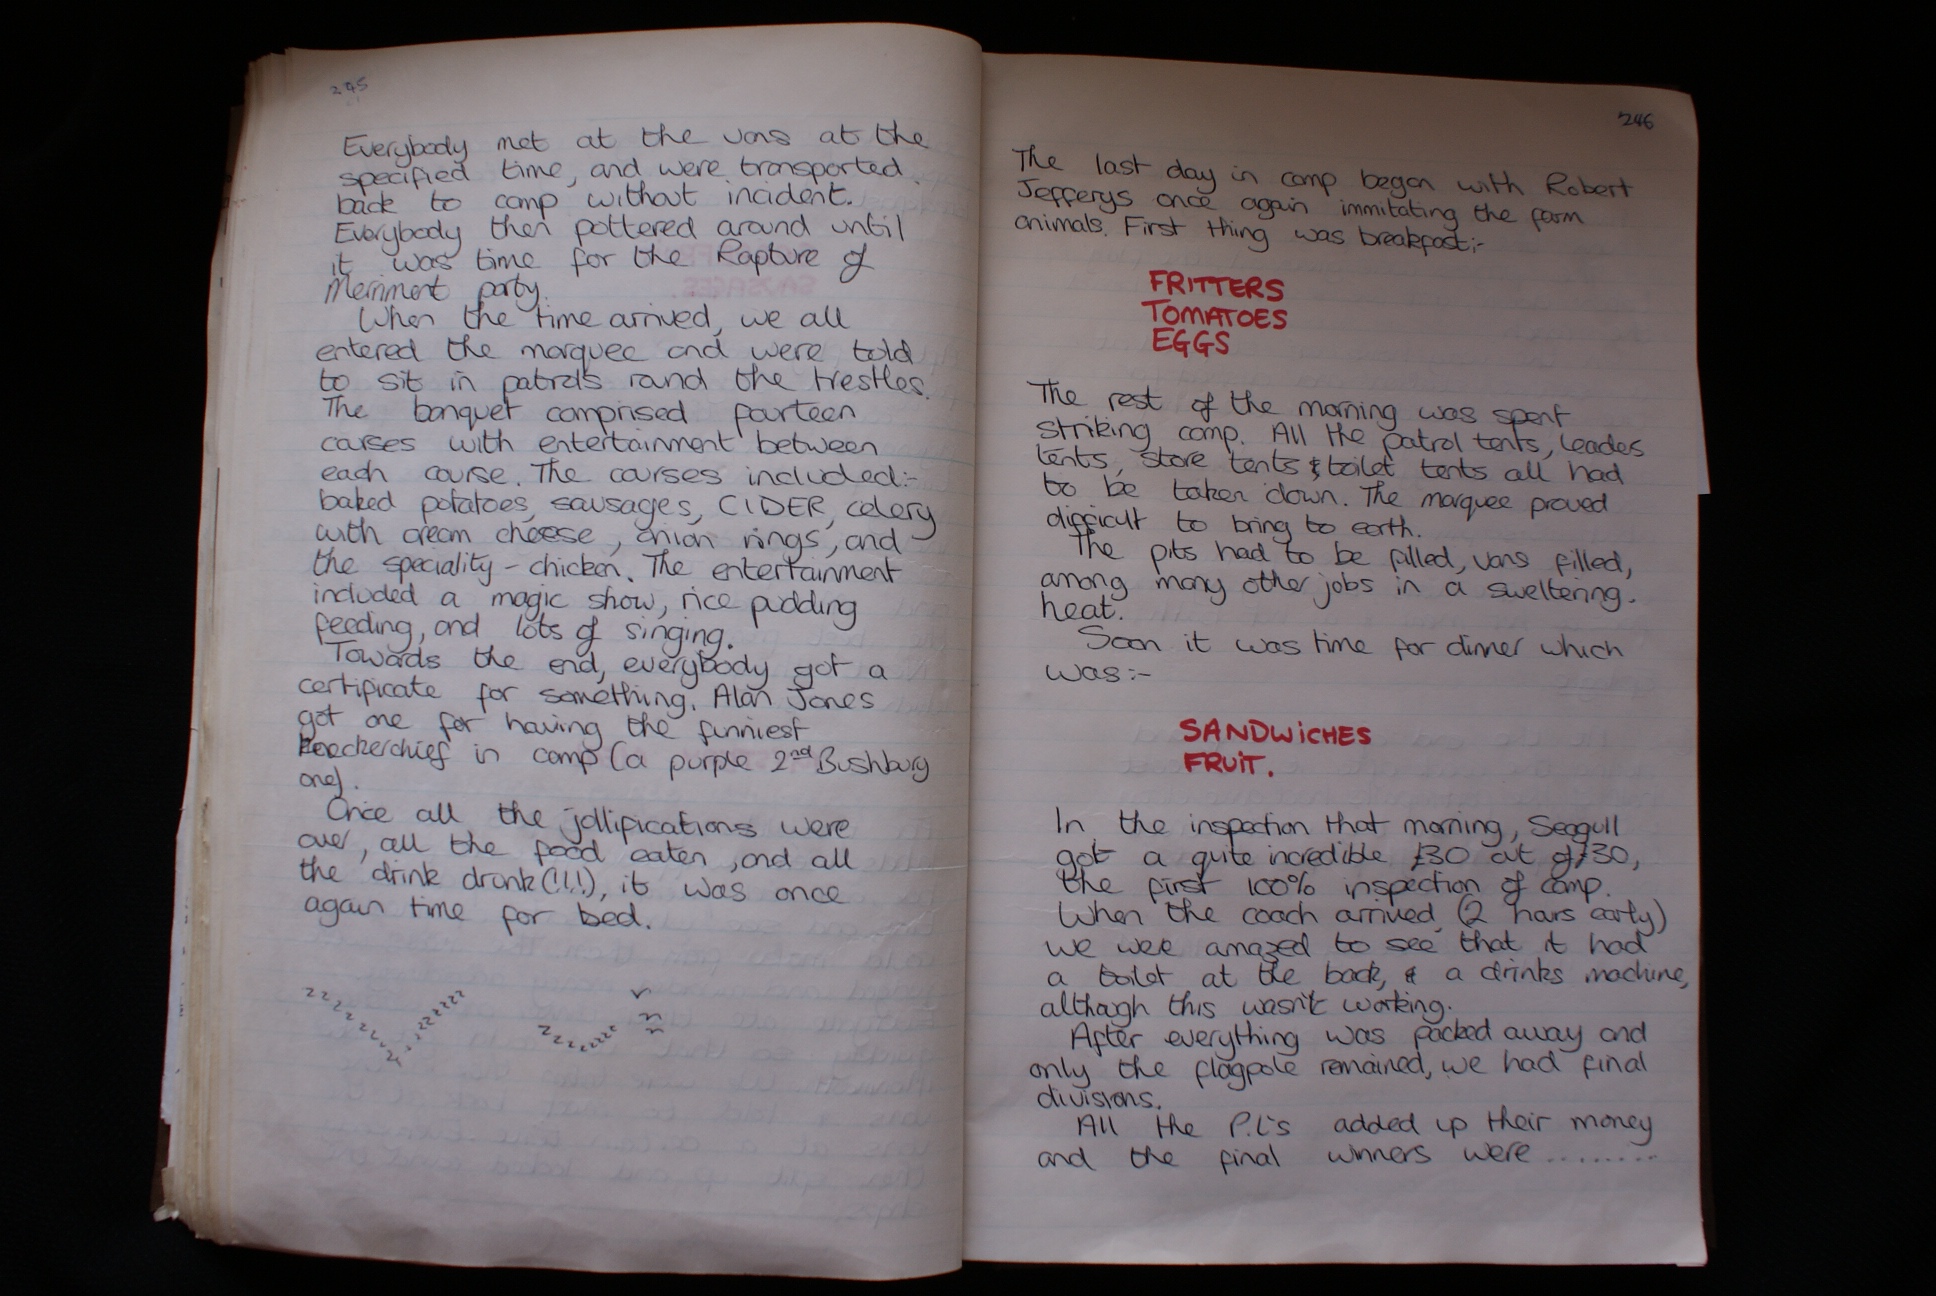 245
Everybody met at the vans at the
specified time, and were transported
back to camp without incident.
Everybody then pottered around until
it was time for the Rapture of
Merriment party.
When the time arrived, we all
entered the marquee and were told
to sit in patrols round the trestles.
The banquet comprised fourteen
courses with entertainment between
each course. The courses included:-
baked potatoes, sausages, CIDER, celery
with cream cheese, onion rings, and
the speciality - chicken. The entertainment
included a magic show, rice pudding
feeding, and lots of singing.
Towards the end, everybody got a
certificate for something. Alan Jones
got one for having the funniest
neckerchief in camp (a purple 2nd Bushbury
one).
Once all the jollifications were
over, all the food eaten, and all
the drink drank (!!!), it was once
again time for bed.
zzzzzzzzzzzzzzzzzzz zzzzzzzzzzz
246
The last day in camp began with Robert
Jefferys once again immitating the farm
animals. First thing was breakfast;-
FRITTERS
TOMATOES
EGGS
The rest of the morning was spent
striking camp. All the patrol tents, leades
tents, store tents & toilet tents all had
to be taken down. The marquee proved
difficult to bring to earth.
The pits had to be filled, vans filled,
among many other jobs in a sweltering
heat.
Soon it was time for dinner which
was:-
SANDWiCHES
FRUiT.
In the inspection that morning, Seagull
got a quite incredible £30 out of £30,
the first 100% inspection of camp.
When the coach arrived (2 hours early)
we were amazed to see that it had
a toilet at the back, & a drinks machine,
although this wasn't working.
After everything was packed away and
only the flagpole remained, we had final
divisions.
All the P.L's added up their money
and the final winners were ........